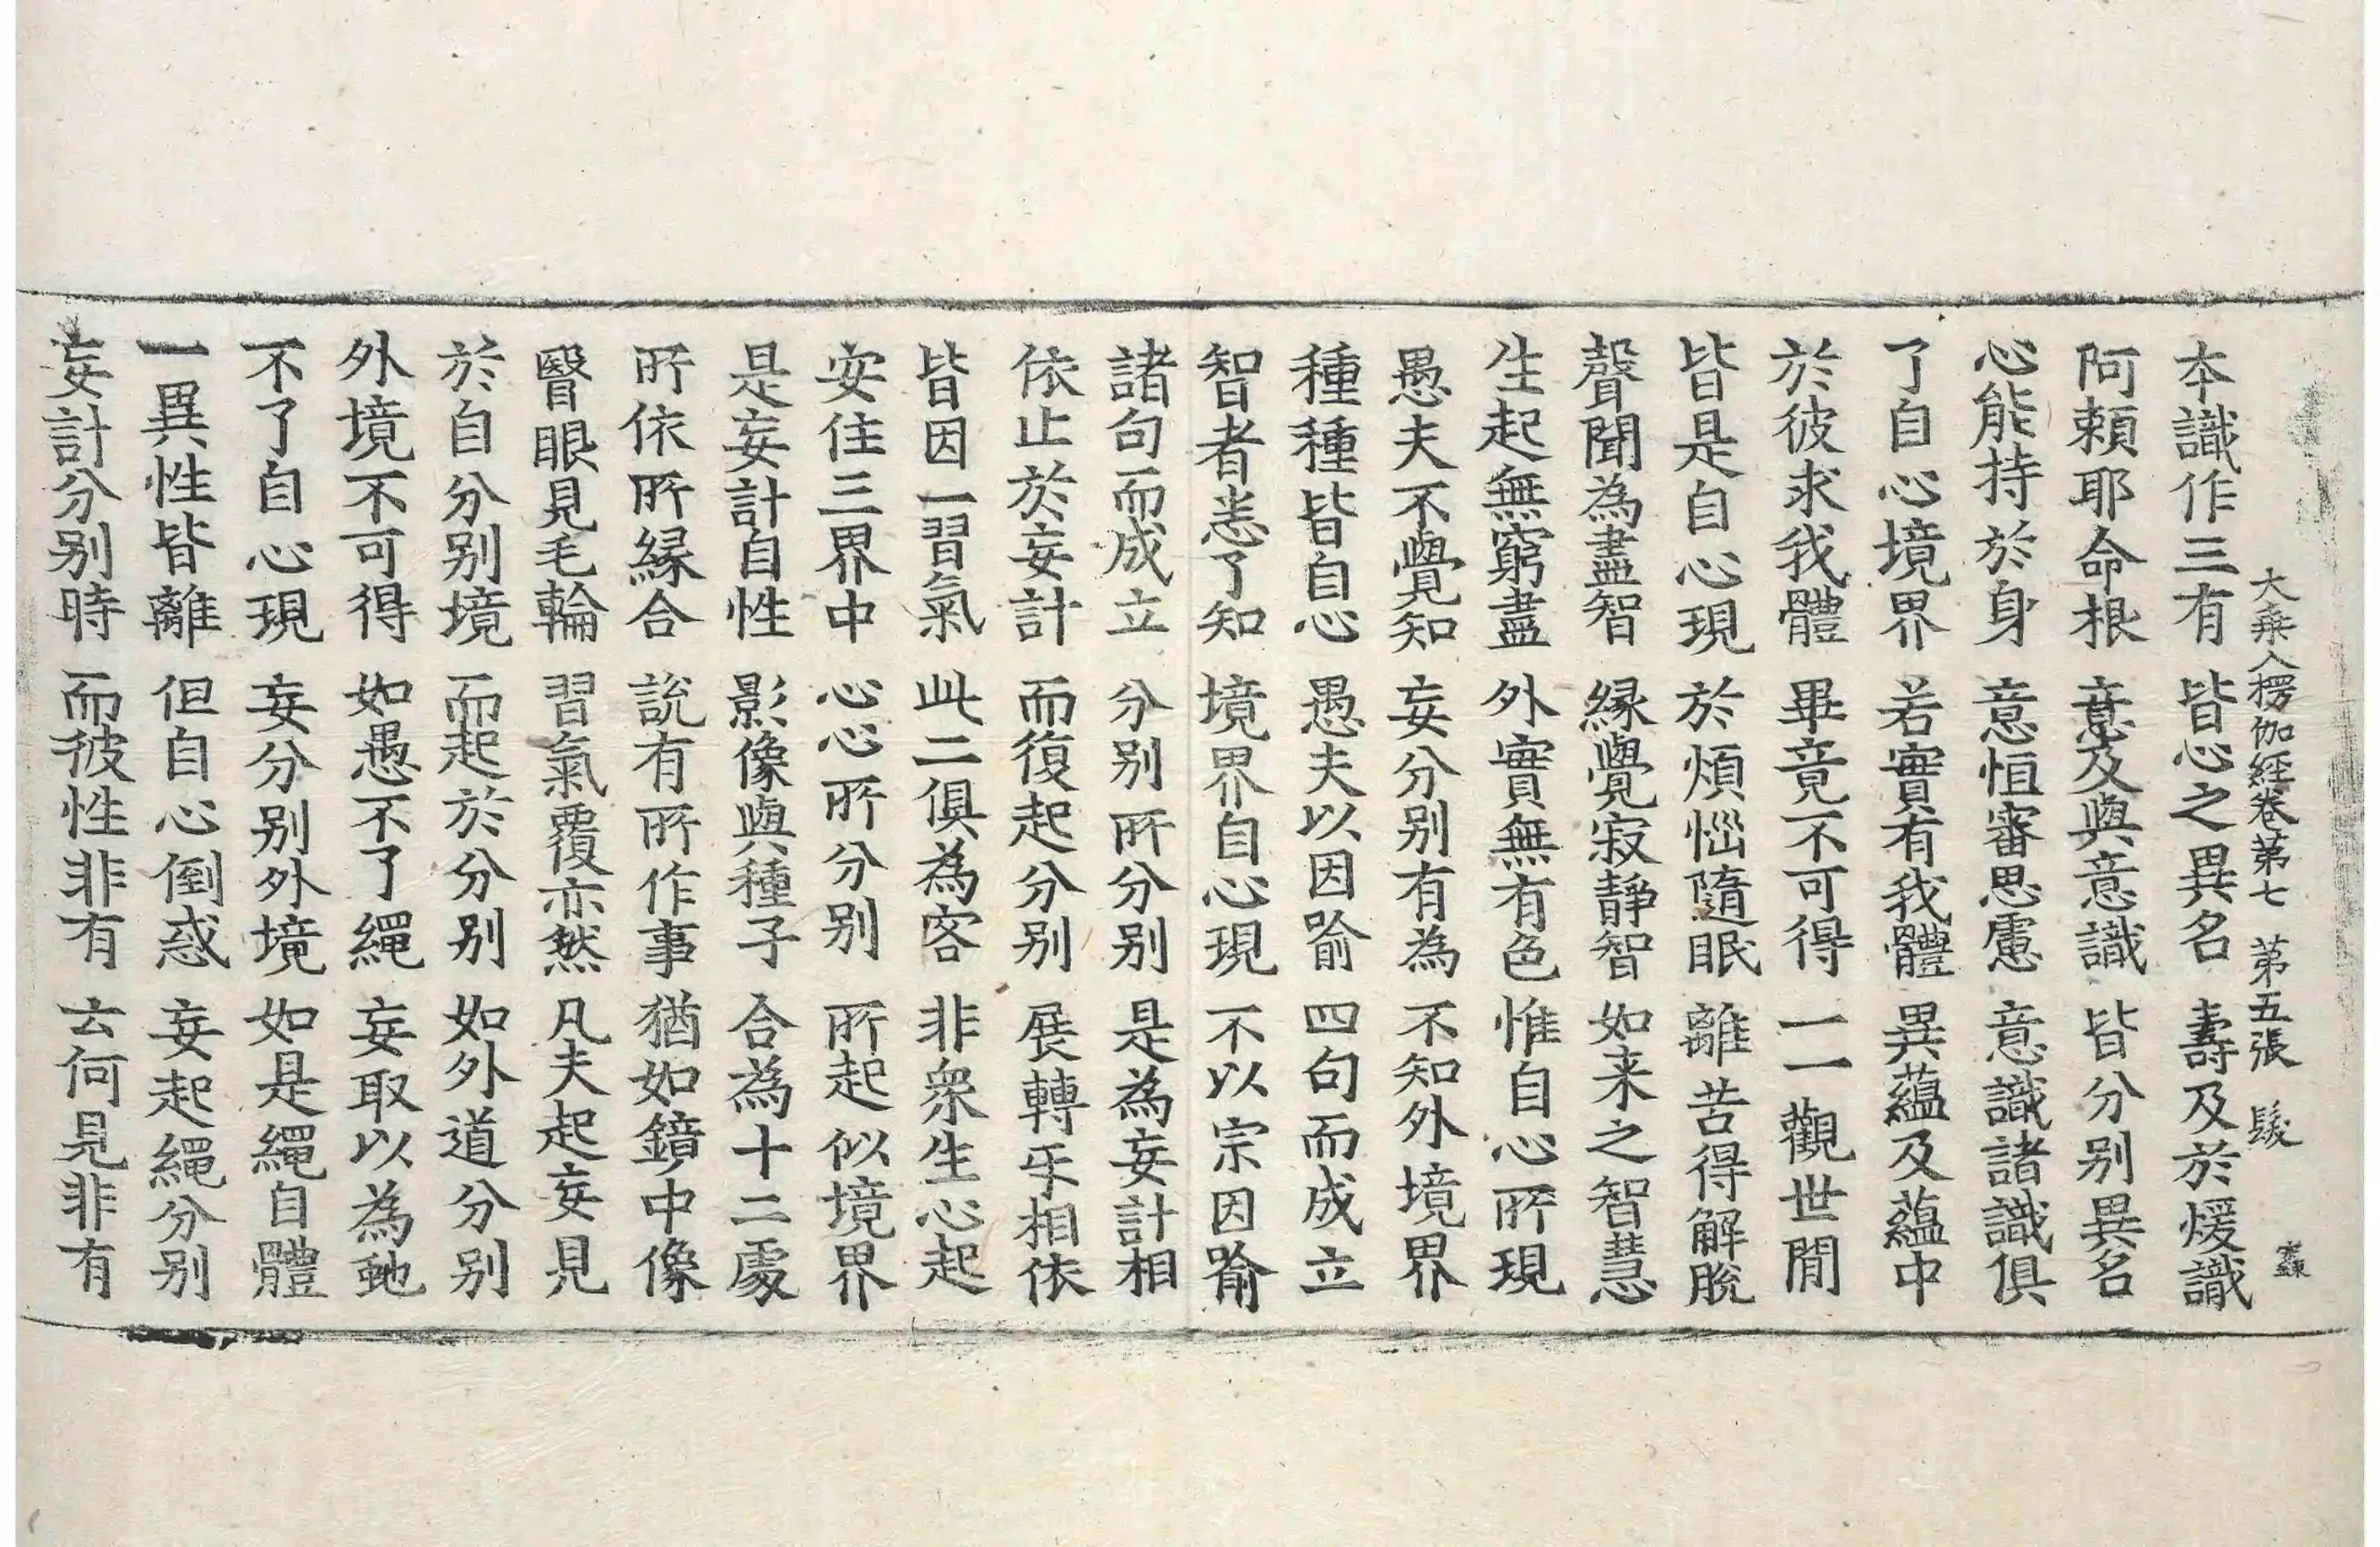 大乗入楞伽經卷第七 第五張 髮
本識作三有 皆心之異名 壽及於煖識
阿頼耶命根 意及與意識 皆分别異名
心能持於身 意恒審思慮 意識諸識俱
了自心境界 若實有我體 異蘊及蘊中
於彼求我體 畢竟不可得 一一觀世間
皆是自心現 於煩惱隨眠 離苦得解脫
聲聞為盡智 縁覺寂靜智 如来之智慧
生起無窮盡 外實無有色 惟自心所現
愚夫不覺知 妄分别有為 不知外境界
種種皆自心 愚夫以因喻 四句而成立
智者悉了知 境界自心現 不以宗因喻
諸句而成立 分别所分别 是為妄計相
依止於妄計 而復起分别 展轉乎相依
皆因一習氣 此二俱為客 非衆生心起
安住三界中 心心所分别 所起似境界
是妄計自性 影像與種子 合為十二處
所依所縁合 說有所作事 猶如鏡中像
瞖眼見毛輪 習氣覆亦然 凡夫起妄見
於自分别境 而起於分别 如外道分别
外境不可得 如愚不了繩 妄取以為虵
不了自心現 妄分别外境 如是繩自體
一異性皆離 但自心倒惑 妄起繩分别
妄計分别時 而彼性非有 云何見非有